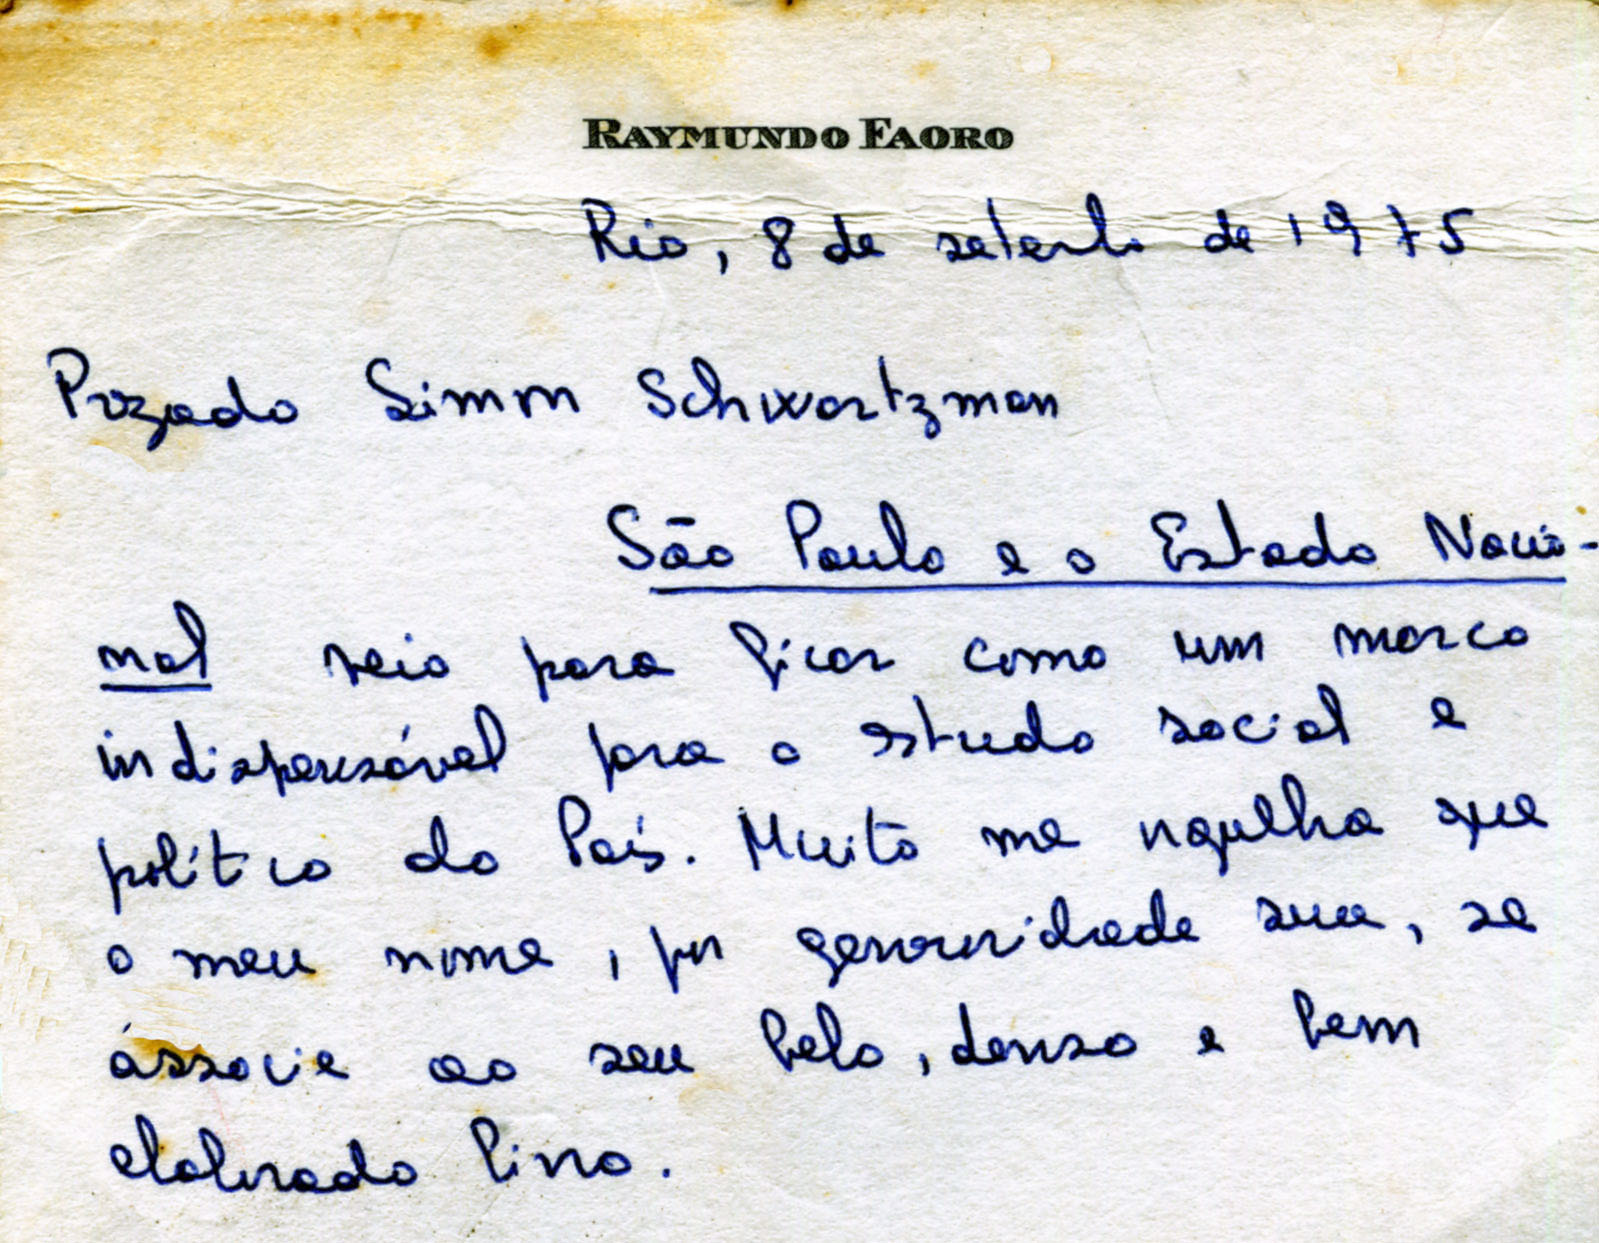 RAYMUNDO FAORO
Rio, 8 de setembro de 1975
Prezado Simon Schwartzman
São Paulo e o Estado Nacio-
nal veio para ficar como um marco
indispensável para o estudo social e
político do País. Muito me orgulha que
o meu nome, por generosidade sua, se
associe ao seu belo, denso e bem
elaborado livro.